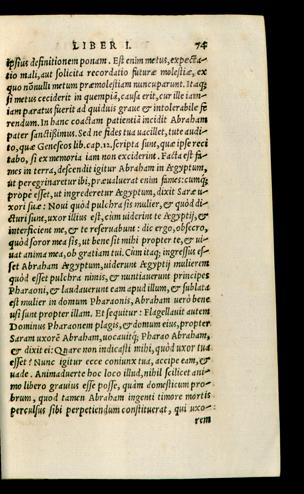 LIBER I. 74
ipsius definitionem ponam. Est enim metus, expecta-
tio mali, aut solicita recordatio futuræ molestiæ, ex
quo nōnulli metum præmolestiam nuncuparunt. Itaq;
si metus ceciderit in quempiā, causa erit, cur ille iam
iam paratus fuerit ad quiduis graue & intolerabile fe
rendum. In hanc coactam patientiā incidit Abraham
pater sanctißimus. Sed ne fides tua uacillet, tute audi-
to, quæ Geneseos lib. cap. 12. scripta sunt, quæ ipse reci
tabo, si ex memoria iam non exciderint. Facta est fa-
mes in terra, descendit igitur Abraham in Ægyptum,
ut peregrinaretur ibi, præualuerat enim fames: cumq;
propè esset, ut ingrederetur Ægyptum, dixit Saræ u-
xori suæ: Noui quòd pulchra sis mulier, & quòd di-
cturi sunt, uxor illius est, cùm uiderint te Ægyptij, &
interficient me, & te reseruabunt: dic ergo, obsecro,
quòd soror mea sis, ut bene sit mihi propter te, & ui-
uat anima mea, ob gratiam tui. Cùm itaq; ingressus es-
set Abraham Ægyptum, uiderunt Ægyptij mulierem
quòd esset pulchra nimis, & nuntiauerunt principes
Pharaoni, & laudauerunt eam apud illum, & sublata
est mulier in domum Pharaonis, Abraham uerò bene
usi sunt propter illam. Et sequitur: Flagellauit autem
Dominus Pharaonem plagis, & domum eius, propter
Saram uxorē Abraham, uocauitq; Pharao Abraham,
& dixit ei: Quare non indicasti mihi, quòd uxor tua
esset? Nunc igitur ecce coniunx tua, accipe eam, &
uade. Animaduerte hoc loco illud, nihil scilicet ani-
mo libero grauius esse posse, quàm domesticum pro-
brum, quod tamen Abraham ingenti timore mortis
perculsus sibi perpetiendum constituerat, qui uxo-
rem